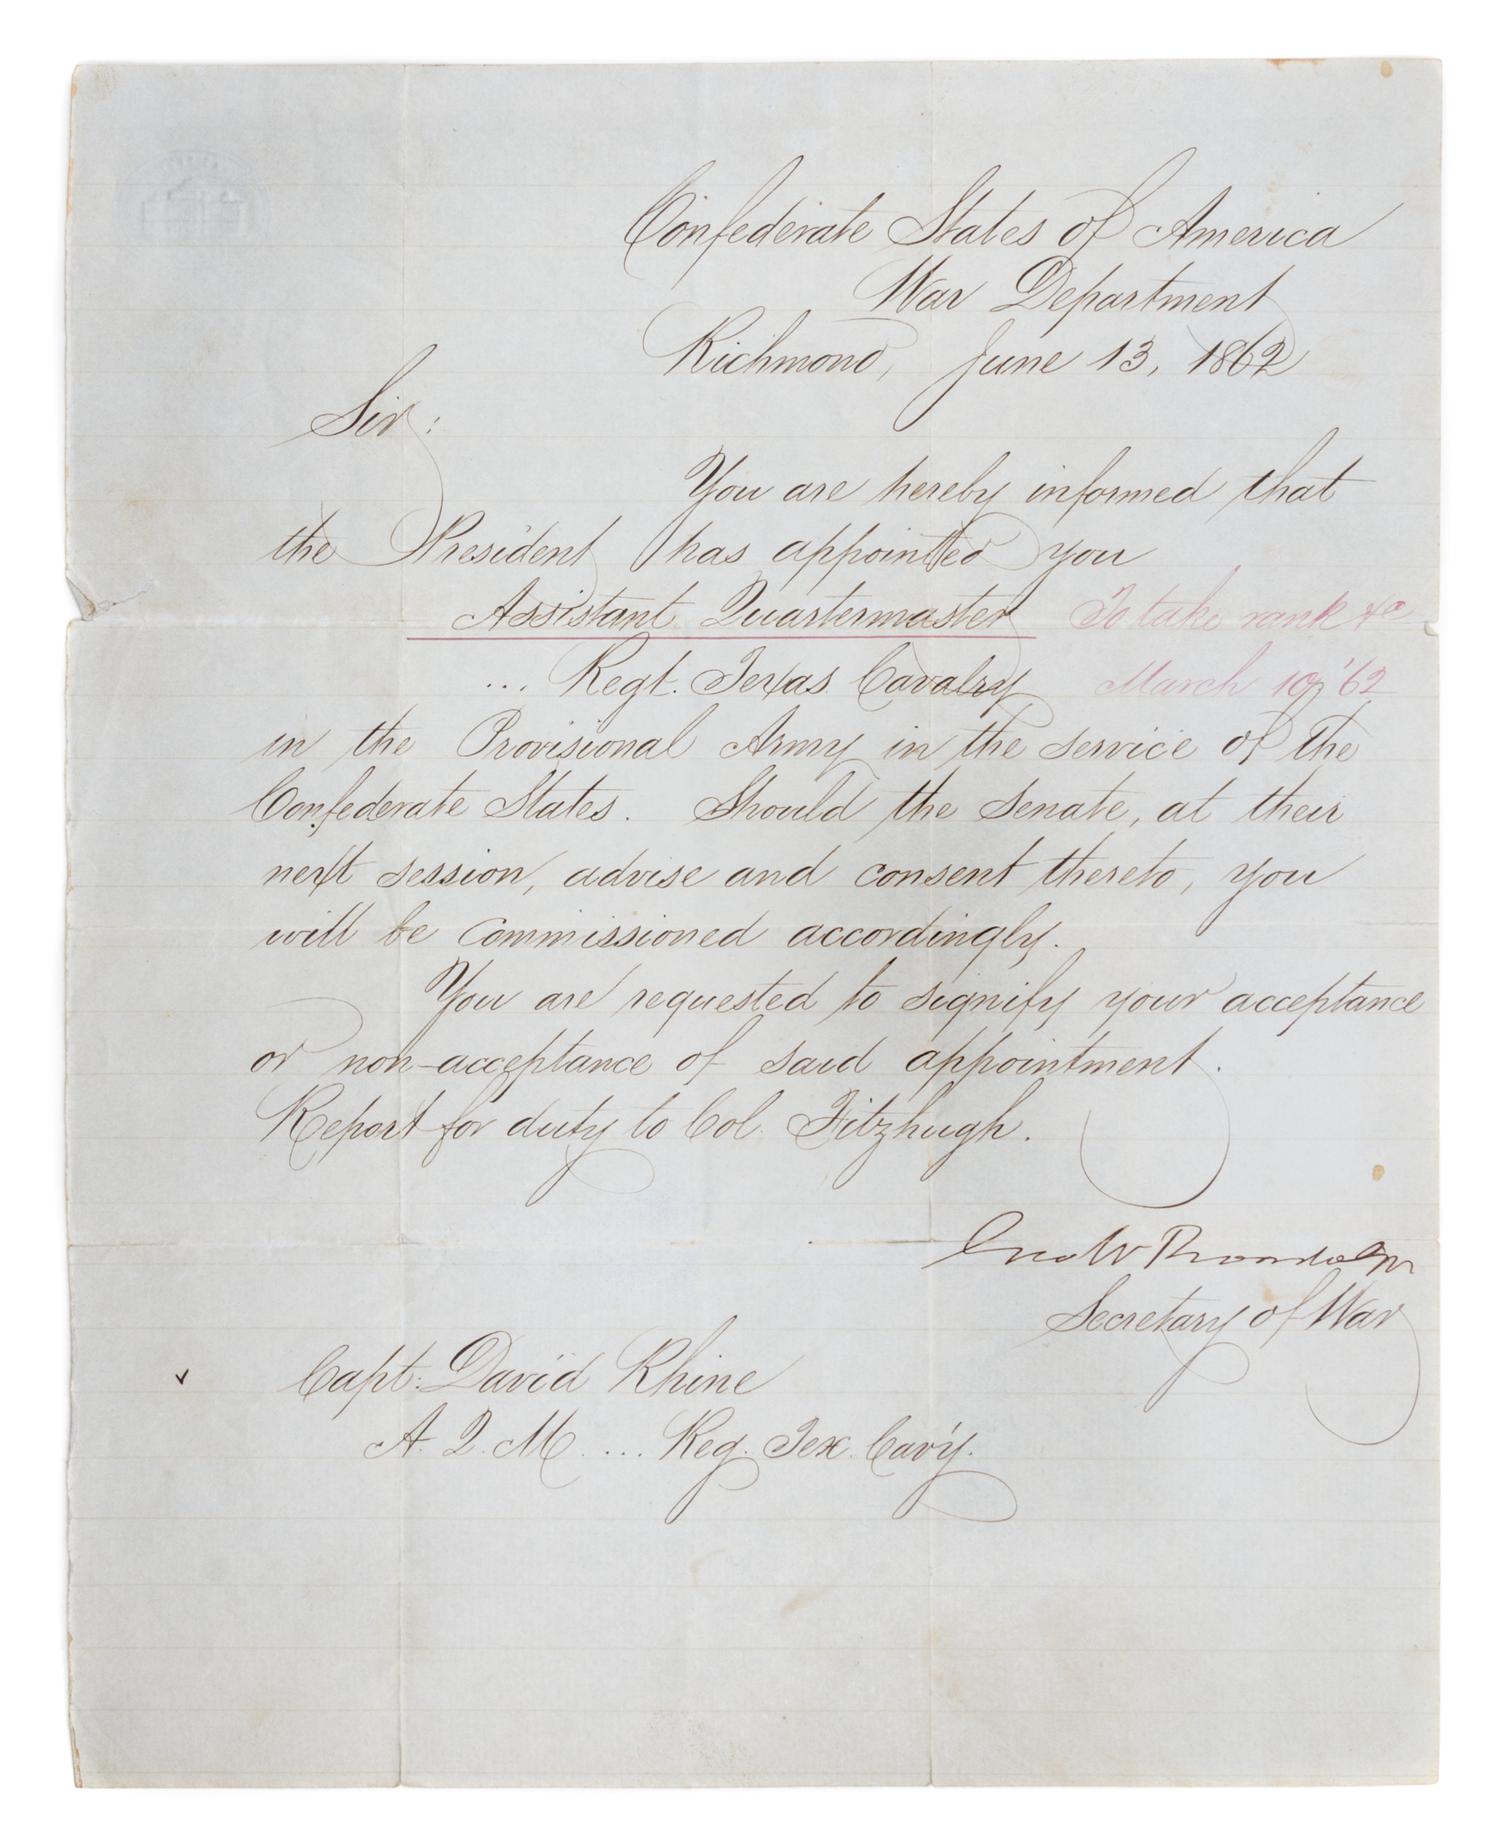 Confederate States of America
War Department
Richmond, June 13, 1862
Sir:
You are hereby informed that
the President has appointed you
Assistant Quartermaster To take rank &c
... Regt. Texas Cavalry March 10, '62
in the Provisional Army in the service of the
Confederate States. Should the Senate, at their
next session, advise and consent thereto, you
will be commissioned accordingly.
You are requested to signify your acceptance
or non-acceptance of said appointment.
Report for duty to Col. Fitzhugh.
Geo W Randolph
Secretary of War
Capt: David Rhine
A. Q. M. ... Reg. Tex. Cav'y.